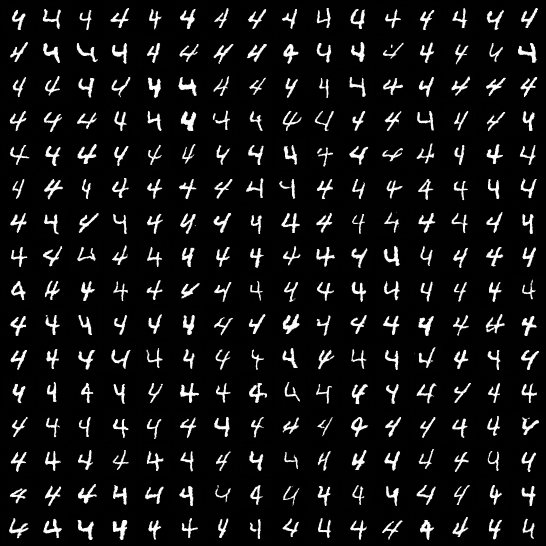 4 4 4 4 4 4 4 4 4 4 4 4 4 4 4 4
4 4 4 4 4 4 4 4 4 4 4 4 4 4 4 4
4 4 4 4 4 4 4 4 4 4 4 4 4 4 4 4
4 4 4 4 4 4 4 4 4 4 4 4 4 4 4 4
4 4 4 4 4 4 4 4 4 4 4 4 4 4 4 4
4 4 4 4 4 4 4 4 4 4 4 4 4 4 4 4
4 4 4 4 4 4 4 4 4 4 4 4 4 4 4 4
4 4 4 4 4 4 4 4 4 4 4 4 4 4 4 4
4 4 4 4 4 4 4 4 4 4 4 4 4 4 4 4
4 4 4 4 4 4 4 4 4 4 4 4 4 4 4 4
4 4 4 4 4 4 4 4 4 4 4 4 4 4 4 4
4 4 4 4 4 4 4 4 4 4 4 4 4 4 4 4
4 4 4 4 4 4 4 4 4 4 4 4 4 4 4 4
4 4 4 4 4 4 4 4 4 4 4 4 4 4 4 4
4 4 4 4 4 4 4 4 4 4 4 4 4 4 4 4
4 4 4 4 4 4 4 4 4 4 4 4 4 4 4 4